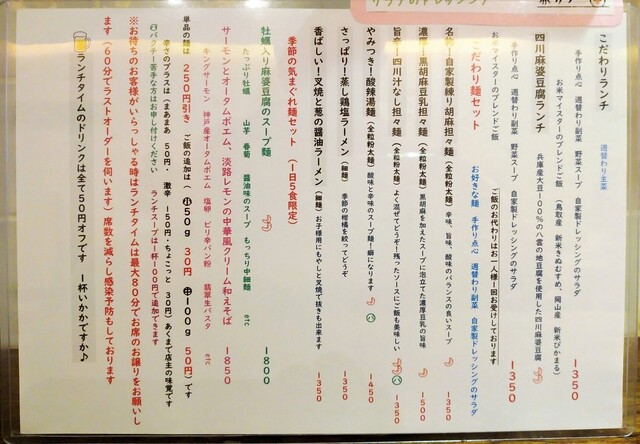 こだわりランチ 週替わり主菜
手作り点心 週替わり副菜 野菜スープ 自家製ドレッシングのサラダ
お米マイスターのブレンドご飯 (鳥取産 新米きぬむすめ、岡山産 新米ぴかまる)
1350
四川麻婆豆腐ランチ 兵庫産大豆100%の八雲の地豆腐を使用した四川麻婆豆腐
手作り点心 週替わり副菜 野菜スープ 自家製ドレッシングのサラダ
お米マイスターのブレンドご飯 ご飯のお代わりはお一人様1回お受けしております
1350
こだわり麺セット お好きな麺 手作り点心 週替わり副菜 自家製ドレッシングのサラダ
名物!自家製練り胡麻担々麺 (全粒粉太麺) 辛味、旨味、酸味のバランスの良いスープ 1350
濃厚!黒胡麻豆乳担々麺 (全粒粉太麺) 黒胡麻を加えたスープに泡立てた濃厚豆乳の旨味 1500
旨辛!四川汁なし担々麺 (全粒粉太麺) よく混ぜてどうぞ!残ったソースにご飯も美味しい パ 1350
やみつき!酸辣湯麺 (全粒粉太麺) 酸味と辛味のスープ麺!癖になります パ 1450
さっぱり!蒸し鶏塩ラーメン (細麺) 季節の柑橘を絞ってどうぞ 1350
香ばしい!叉焼と葱の醤油ラーメン (細麺) お子様用にもやしと叉焼で抜きも出来ます 1350
季節の気まぐれ麺セット (1日5食限定)
牡蠣入り麻婆豆腐のスープ麺 1800
たっぷり牡蠣 山芋 春菊 醤油味のスープ もっちり中細麺 etc
サーモンとオータムポエム、淡路レモンの中華風クリーム和えそば 1850
キングサーモン 神戸産オータムポエム 塩卵 ピリ辛パン粉 翡翠生パスタ etc
単品の麺は 250円引き ご飯の追加は (小50g 30円 中100g 50円) です
辛さのプラスは (まあまあ 50円・ 激辛 150円・ ちょこっと 30円) あくまで店主の味覚です
パ パクチー苦手な方はお申し付けください ランチスープは1杯100円で追加できます
※お待ちのお客様がいらっしゃる時はランチタイムは最大80分でお席のお譲りをお願いし
ます (60分でラストオーダーを伺います) 席数を減らし感染予防もしております
ランチタイムのドリンクは全て50円オフです 1杯いかがですか♪